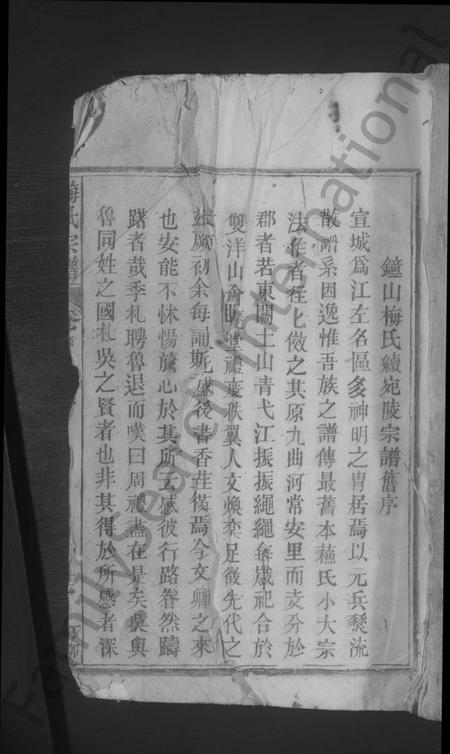 鐘山梅氏續宛陵宗譜舊序
宣城爲江左名區多神明之冑居焉以元兵燹流
散譜系因逸惟吾族之譜傳最舊本蘓氏小大宗
法作者徃徃倣之其原九曲河常安里而支分於
郡者若東關土山青弋江振振繩繩每歲祀合於
雙洋山會
禮度秩翼人文煥奕足徵先代之
厥初余每誦斯
感後書香
焉今文卿之來
也安能不怵惕於心於其所云感彼行路眷然躊
躇者哉季札聘魯退而嘆曰周禮盡在是矣吳與
魯同姓之國札吳之賢者也非其得於所感者深
梅氏宗譜
FamilySearch International